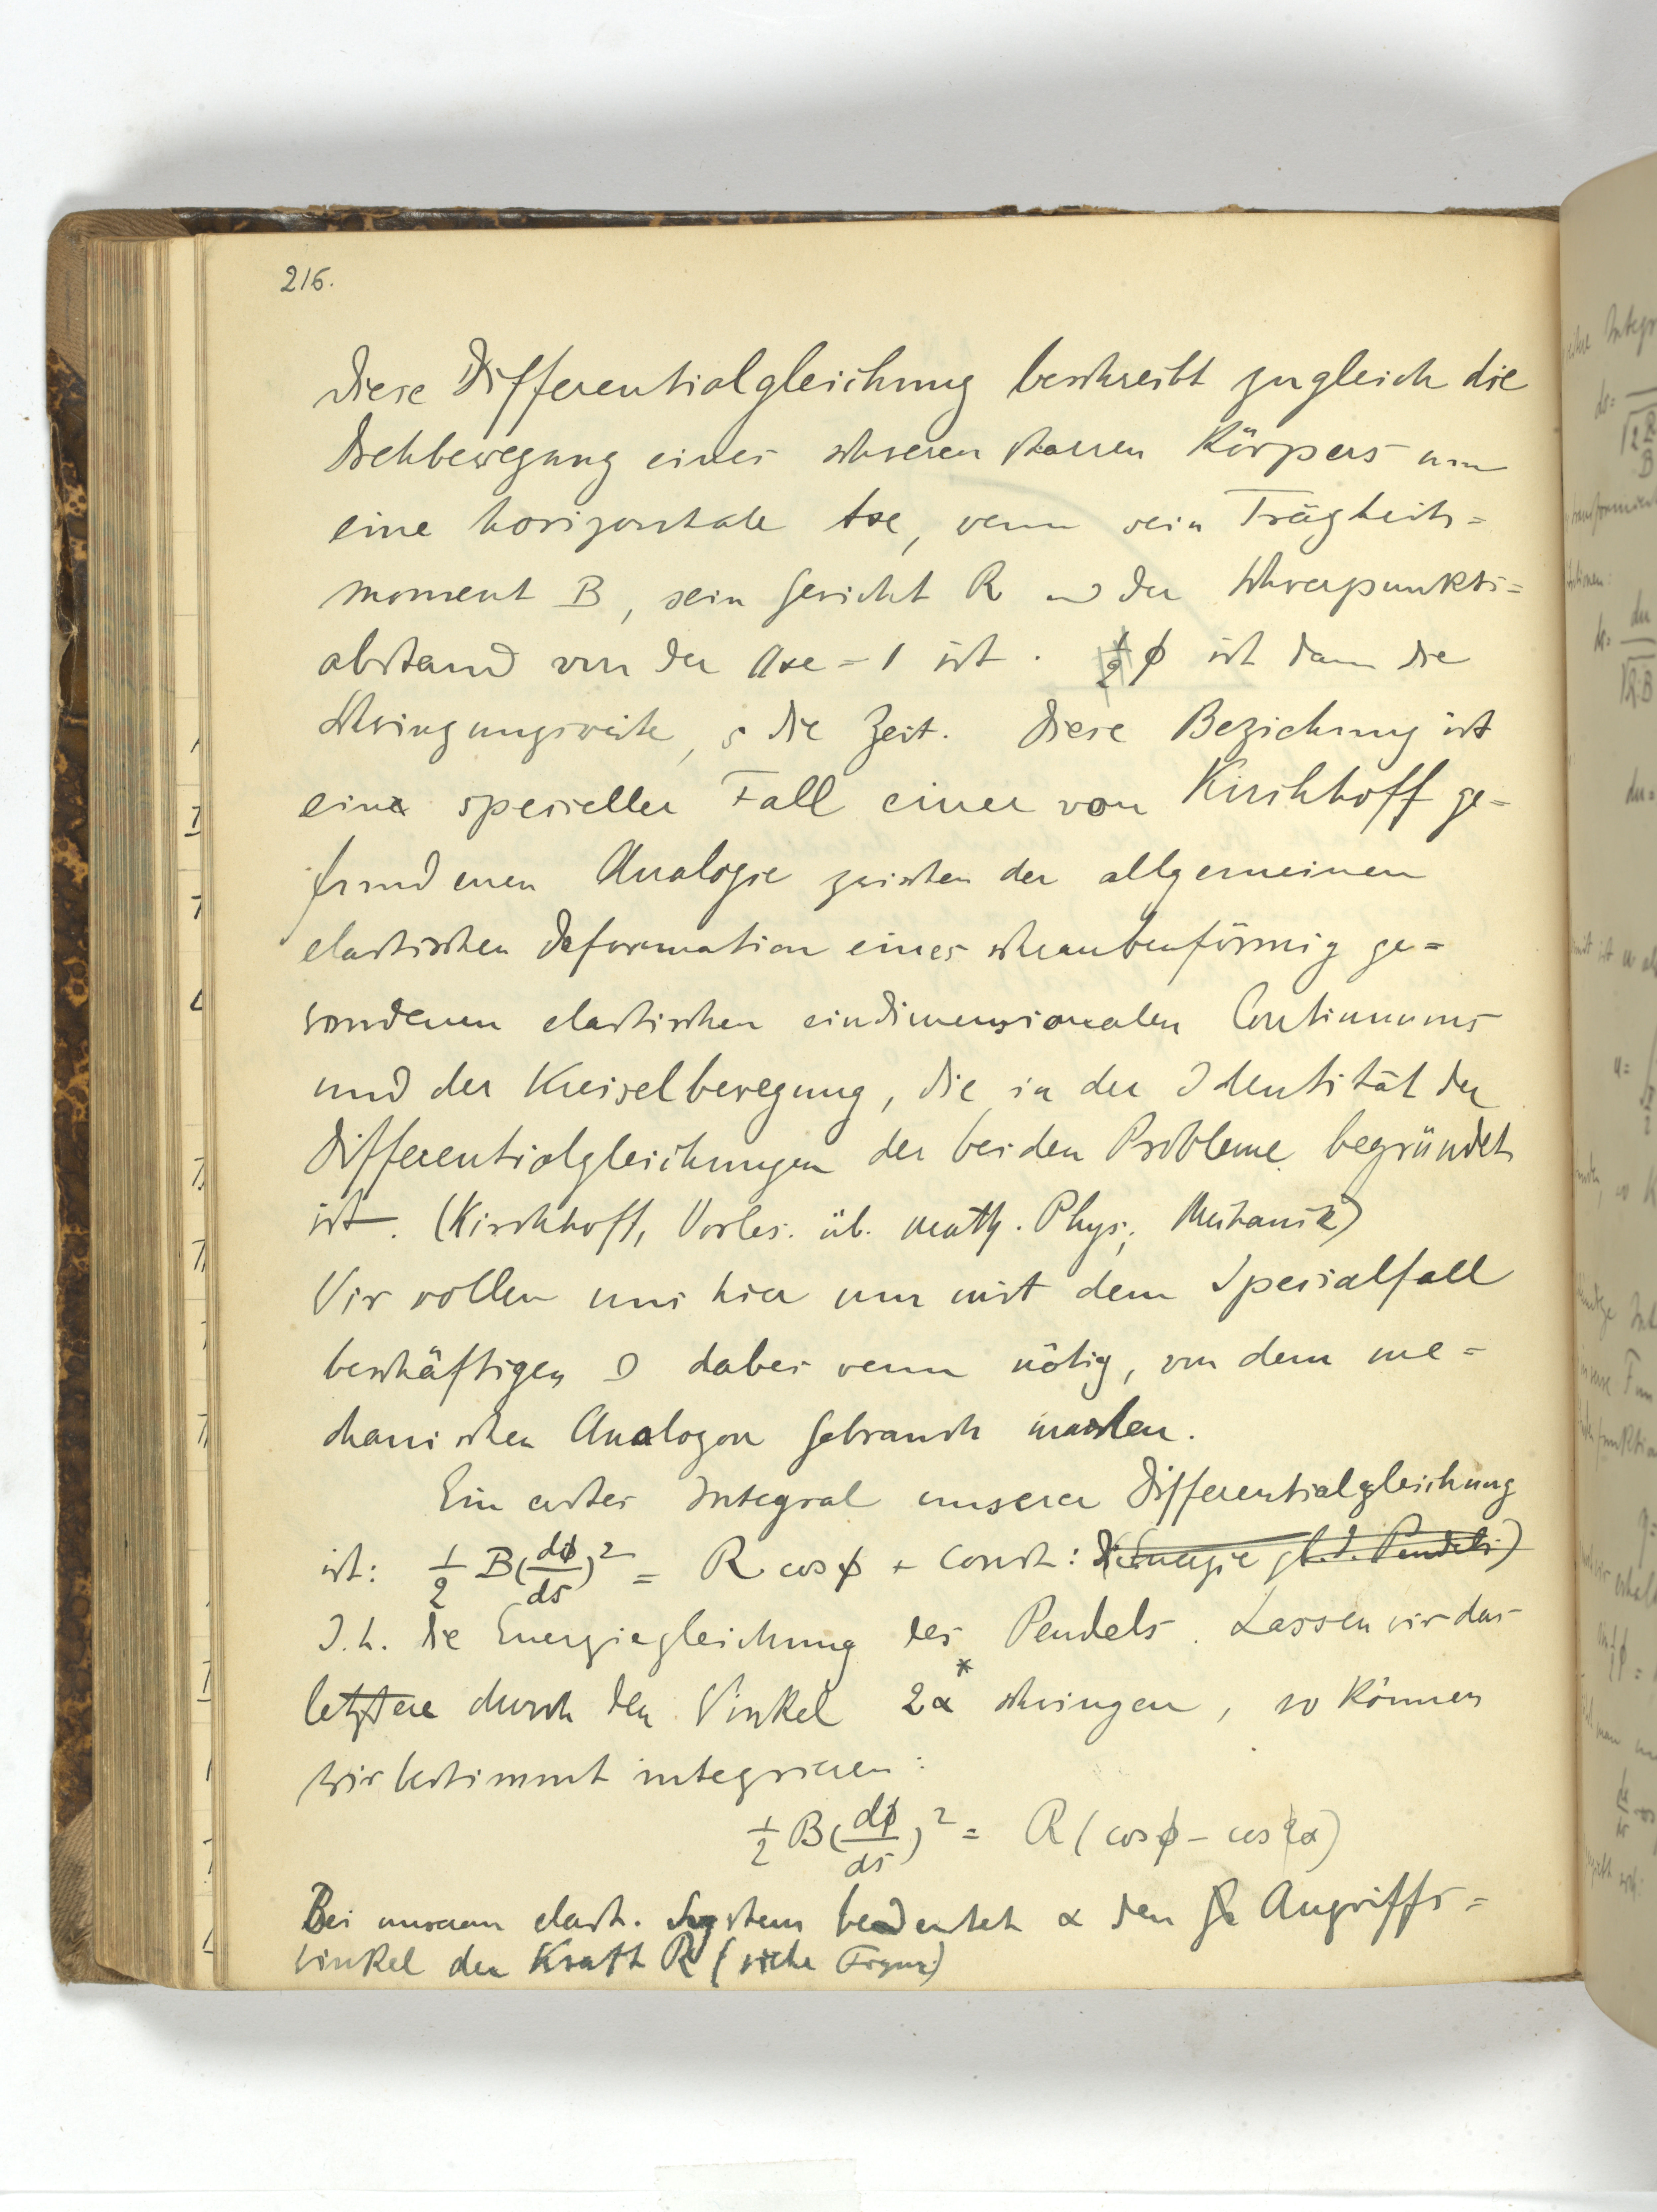 216.
Diese Differentialgleichung beschreibt zugleich die
Drehbewegung eines schweren starren Körpers um
eine horizontale Axe, wenn sein Trägheits=
moment B, sein Gewicht R und der Schwerpunkts=
abstand von der Axe = 1 ist. ½ ϕ ist dann die
Schwingungsweite, s die Zeit. Diese Beziehung ist
ein spezieller Fall einer von Kirchhoff ge=
fundenen Analogie zwischen der allgemeinen
elastischen Deformation eines schraubenförmig ge=
wundenen elastischen eindimensionalen Continuums
und der Kreiselbewegung, die in der Identität der
Differentialgleichungen der beiden Probleme begründet
ist. (Kirchhoff, Vorles. üb. math. Phys., Mechanik)
Wir wollen uns hier nur mit dem Spezialfall
beschäftigen u dabei wenn nötig, von dem me=
chanischen Analogon Gebrauch machen.
Ein erstes Integral unserer Differentialgleichung
ist: ½ B(dϕ/ds)² = R cos ϕ + Const: (Energie gl. d. Pendels)
d.h. die Energiegleichung des Pendels. Lassen wir das
letztere durch den Winkel 2α* schwingen, so können
wir bestimmt integrieren:
½ B(dϕ/ds)² = R(cosϕ - cos α)
Bei unserem elast. System bedeutet α den Angriffs=
winkel der Kraft R (siehe Figur)